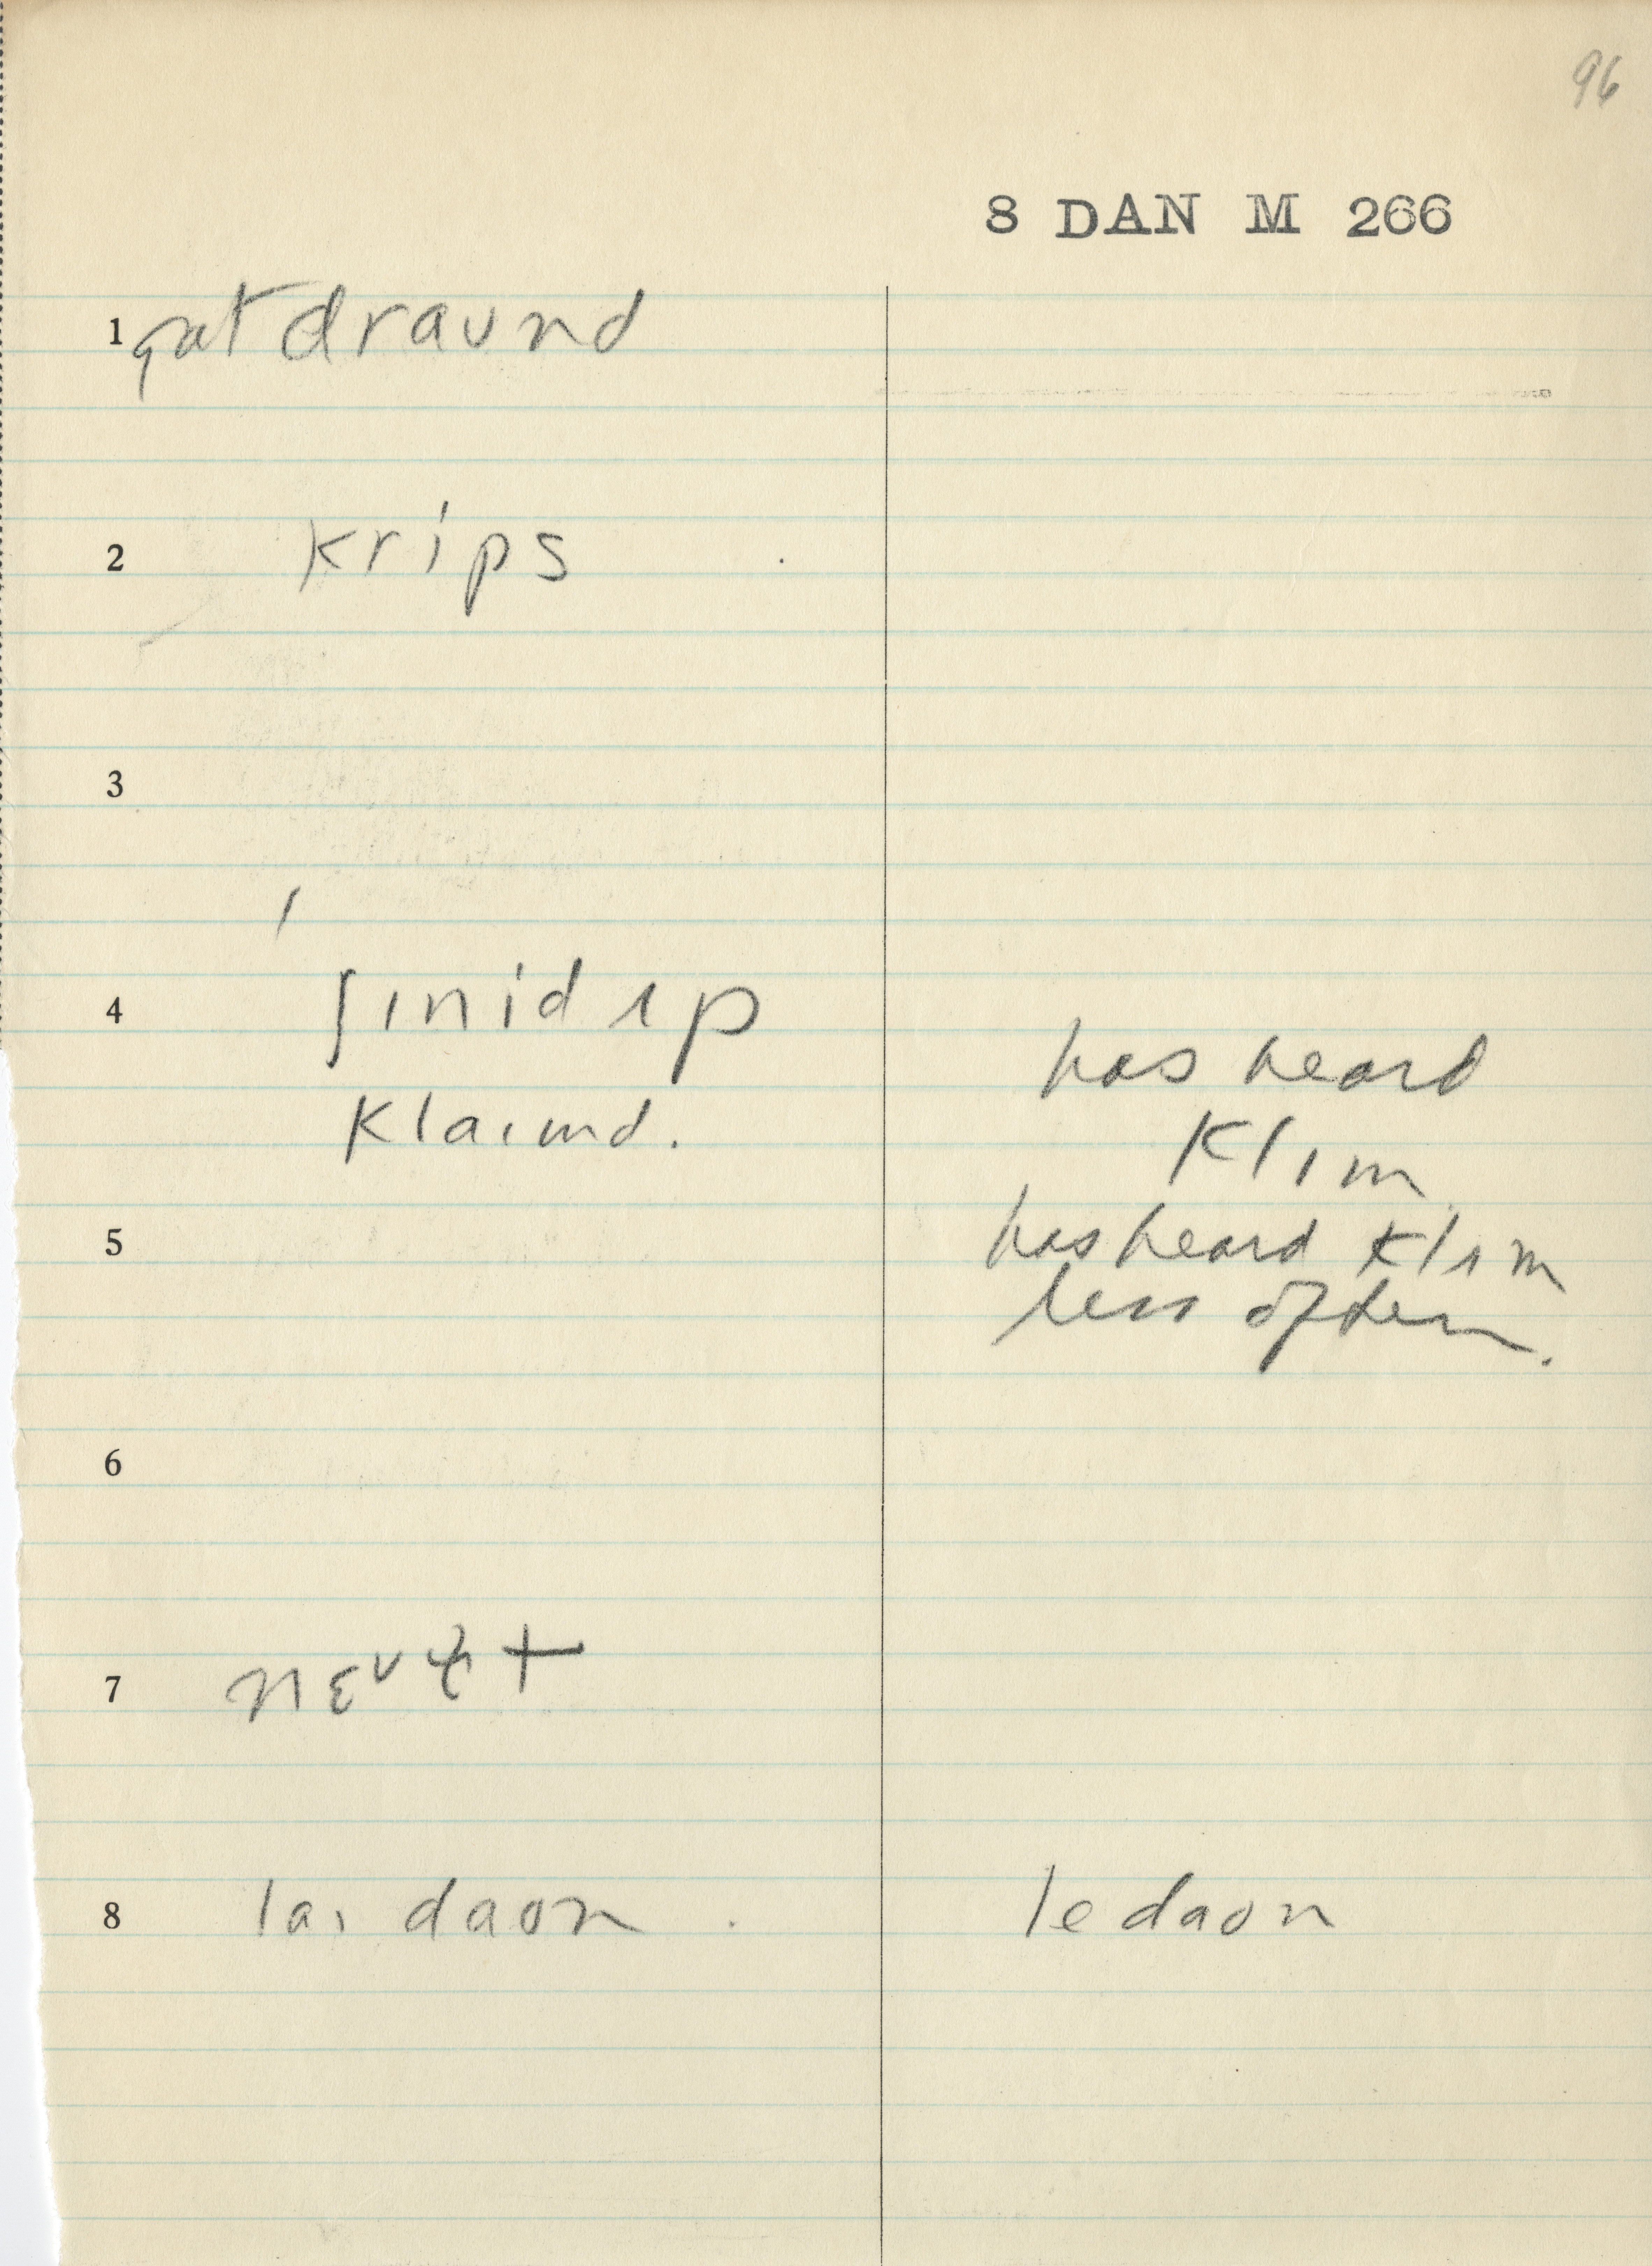 96
8 DAN M 266
1 gat draund
2 krips
3
4 ʃɪnid ʌp
has heard
klaɪmd.
klɪm
5
has heard klʌm
less often.
6
7
8 laɪ daʊn . le daʊn